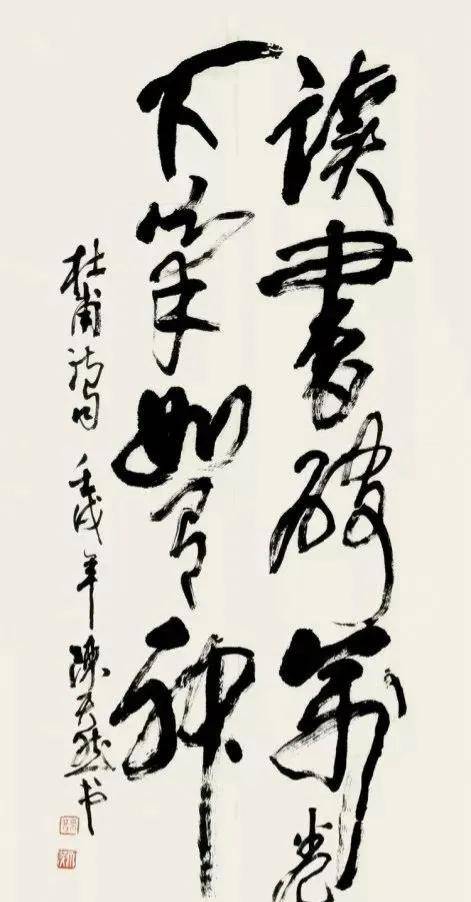 讀書破萬卷
下筆如有神
杜甫詩句 壬戌年 陳天然书